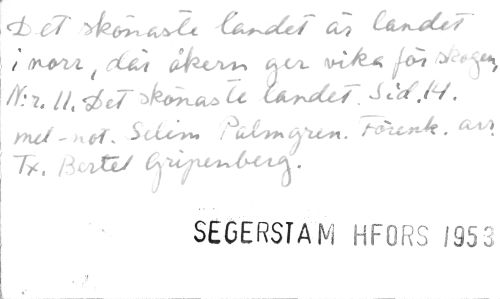 Det skönaste landet är landet
i norr, där åkern ger vika för skogen,
N:r. 11. Det skönaste landet. Sid. 14.
mel-not. Selim Palmgren. Förenk. arr.
Tx. Bertel Gripenberg.
SEGERSTAM HFORS 1953